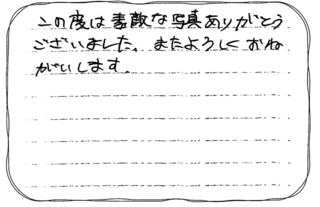 この度は素敵な写真ありがとう
ございました。またよろしくおね
がいします。